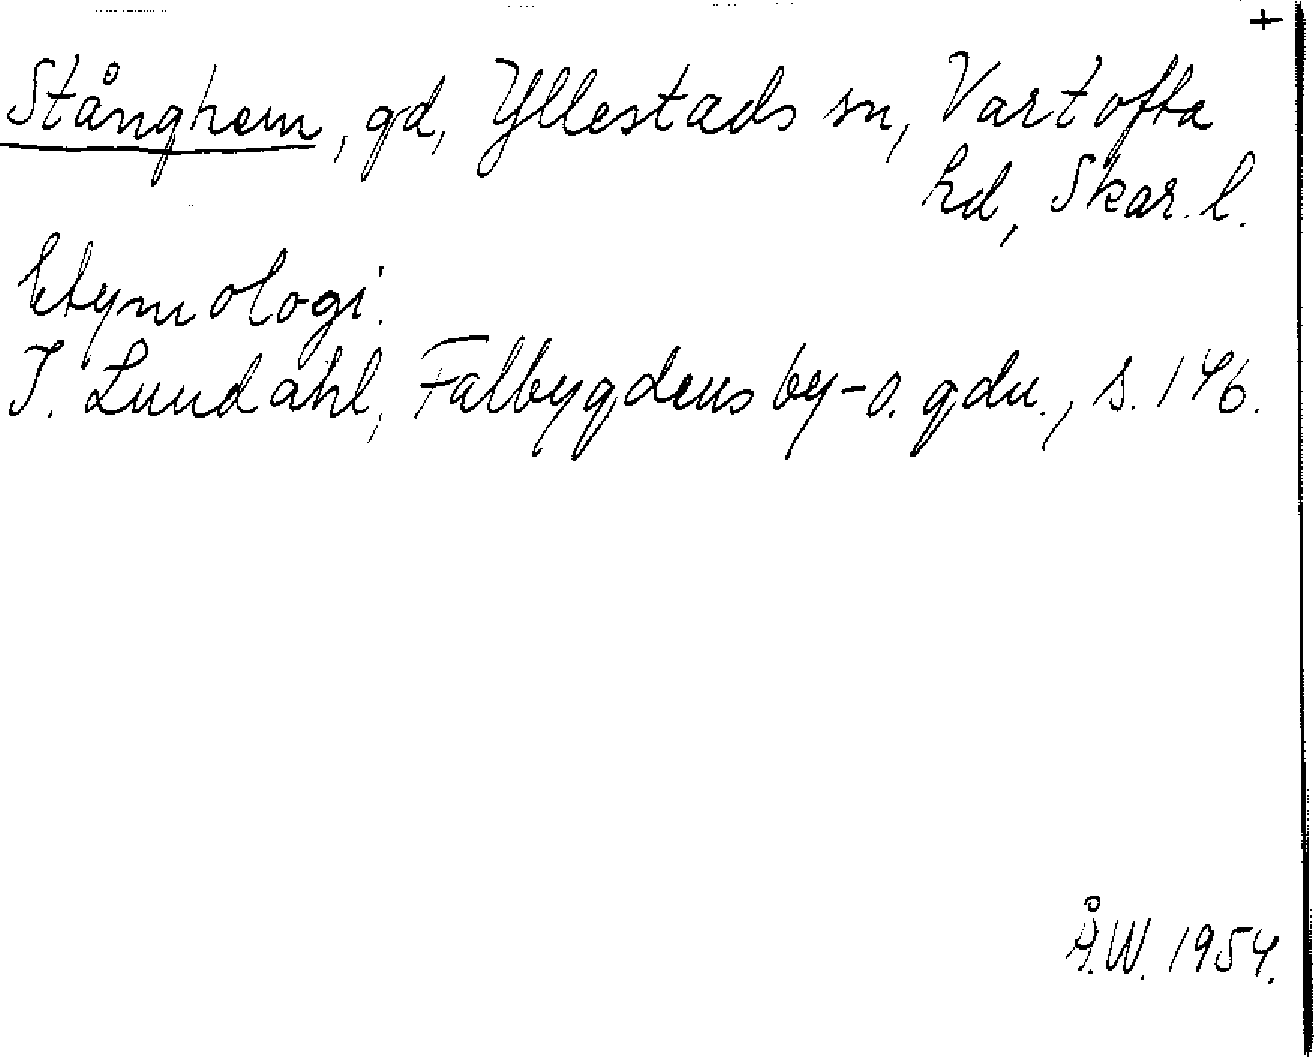 +
Stånghem, gd, Yllestads sn, Vartofta
hd, Skar. l.
Etymologi.
I. Lundahl, Falbygdens by- o. gdn., s. 146.
Å.W. 1954.